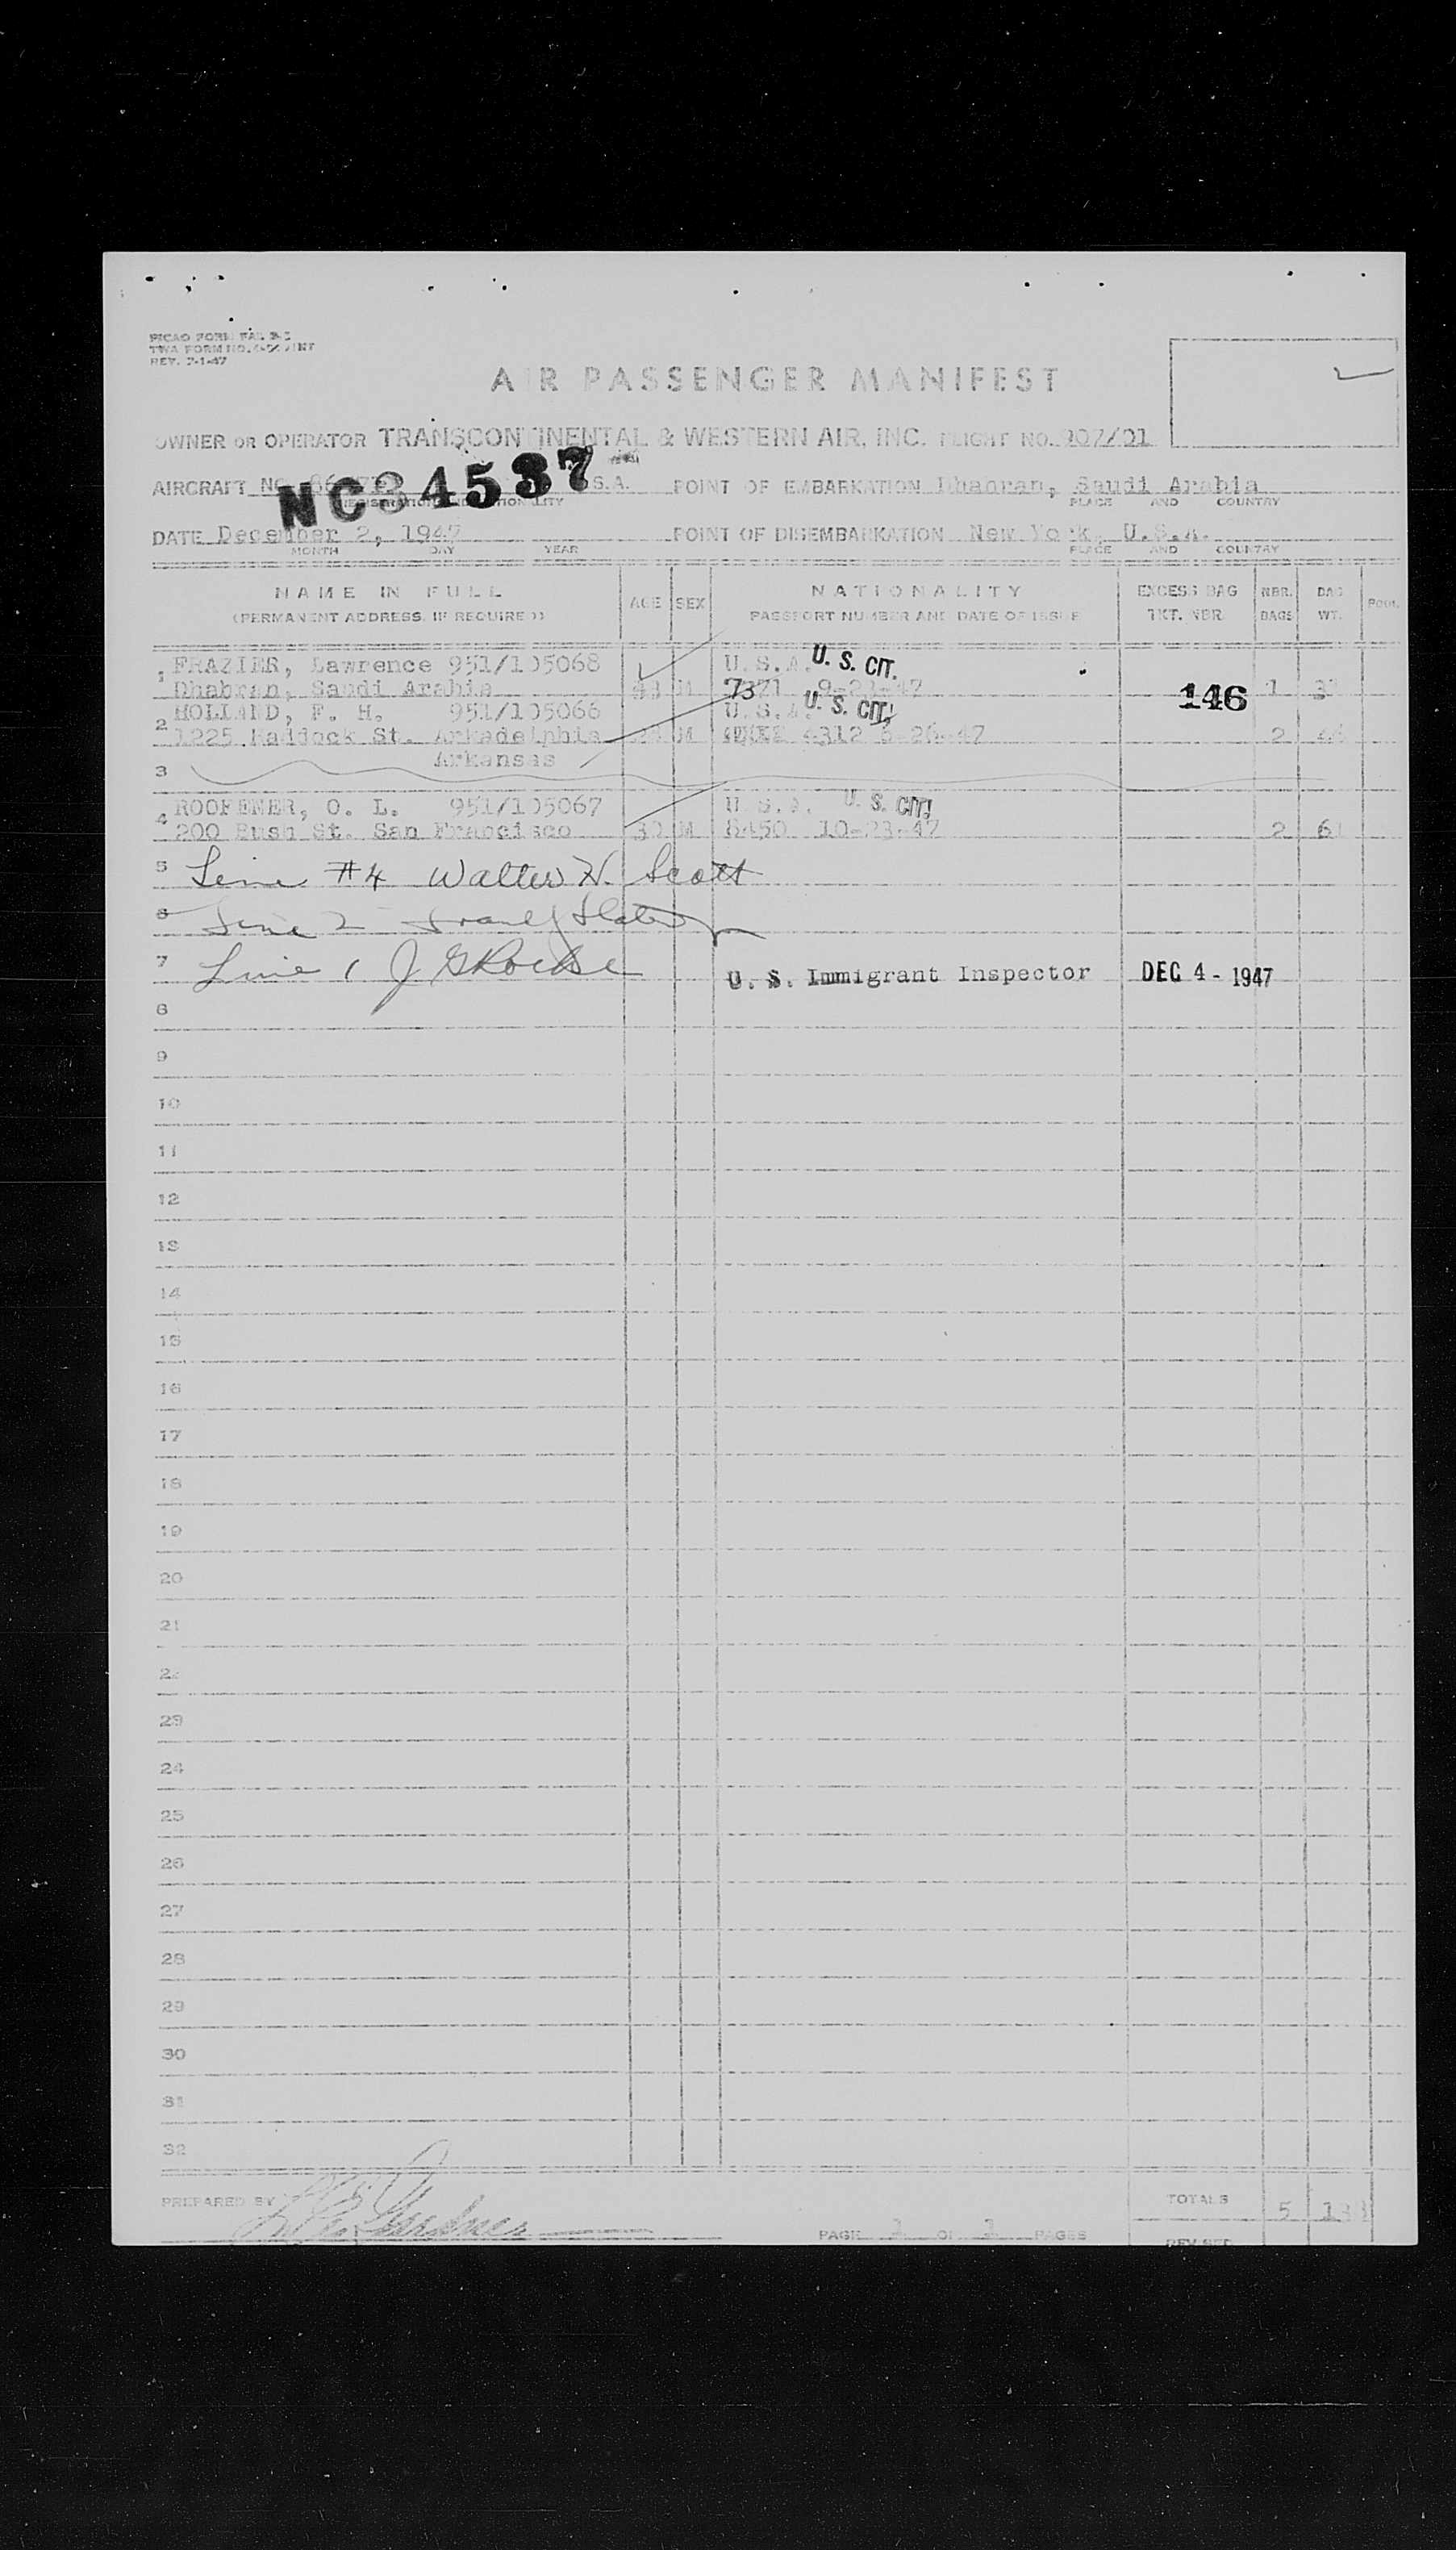 REV. 7-1-47
AIR PASSENGER MANIFEST
OWNER OR OPERATOR TRANSCONTINENTAL & WESTERN AIR, INC. FLIGHT NO. 907/01
AIRCRAFT NO. NC34537 S.A. POINT OF EMBARKATION Dhahran, Saudi Arabia
PLACE AND COUNTRY
DATE December 2, 1947 POINT OF DISEMBARKATION New York, U.S.A.
MONTH DAY YEAR PLACE AND COUNTRY
NAME IN FULL AGE SEX NATIONALITY EXCESS BAG NBR. BAG
(PERMANENT ADDRESS, IF REQUIRED) PASSPORT NUMBER AND DATE OF ISSUE TKT. NBR. BAGS WT.
1 FRAZIER, Lawrence 951/105068 U.S.A. U. S. CIT.
Dhahran, Saudi Arabia M 7371 146 1
2 HOLLAND, F. H. 951/105066 U.S.A. U. S. CIT.
1225 Haddock St. Arkadelphia M 4312 6-26-47 2
Arkansas
3
4 ROOFENER, O. L. 951/105067 U.S.A. U. S. CIT.
200 Bush St. San Francisco M 8450 10-23-47 2
5 Line #4 Walter H. Scott
6 Line 2
7 Line 1 U. S. Immigrant Inspector DEC 4 - 1947
8
9
10
11
12
13
14
15
16
17
18
19
20
21
22
23
24
25
26
27
28
29
30
31
32
PREPARED BY TOTALS 5
PAGE 1 OF 1 PAGES